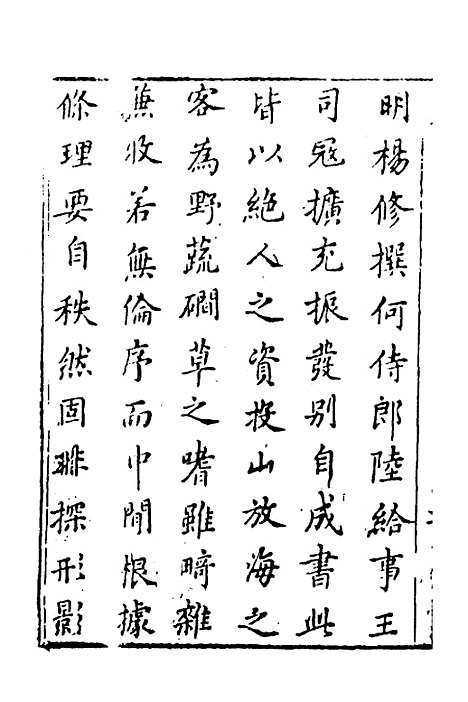 明楊修撰何侍郎陸給事王
司冦擴充振發别自成書此
皆以絶人之資投山放海之
客為野蔬磵草之嗜雖畸雜
兼收若無倫序而中間根據
條理要自秩然固非探形影